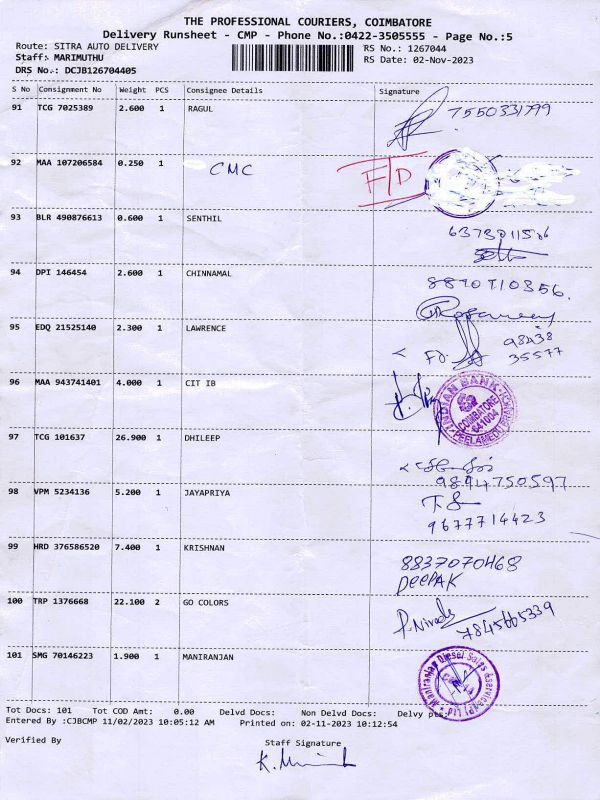 THE PROFESSIONAL COURIERS, COIMBATORE
Delivery Runsheet - CMP - Phone No.:0422-3505555 - Page No.:5
Route: SITRA AUTO DELIVERY RS No.: 1267044
Staff: MARIMUTHU RS Date: 02-Nov-2023
DRS No.: DCJB126704405
S No Consignment No Weight PCS Consignee Details Signature
91 TCG 7025389 2.600 1 RAGUL 7550331799
92 MAA 107206584 0.250 1 CMC F/D
93 BLR 490876613 0.600 1 SENTHIL
94 DPI 146454 2.600 1 CHINNAMAL
95 EDQ 21525140 2.300 1 LAWRENCE FD. 98438
35577
96 MAA 943741401 4.000 1 CIT IB INDIAN BANK COIMBATORE 641004 PEELAMEDU
97 TCG 101637 26.900 1 DHILEEP
9894750597
98 VPM 5234136 5.200 1 JAYAPRIYA
9677714423
99 HRD 376586520 7.400 1 KRISHNAN 8837070468
DEEPAK
100 TRP 1376668 22.100 2 GO COLORS
101 SMG 70146223 1.900 1 MANIRANJAN Maniranjan Diesel Sales
Tot Docs: 101 Tot COD Amt: 0.00 Delvd Docs: Non Delvd Docs: Delvy
Entered By :CJBCMP 11/02/2023 10:05:12 AM Printed on: 02-11-2023 10:12:54
Verified By Staff Signature